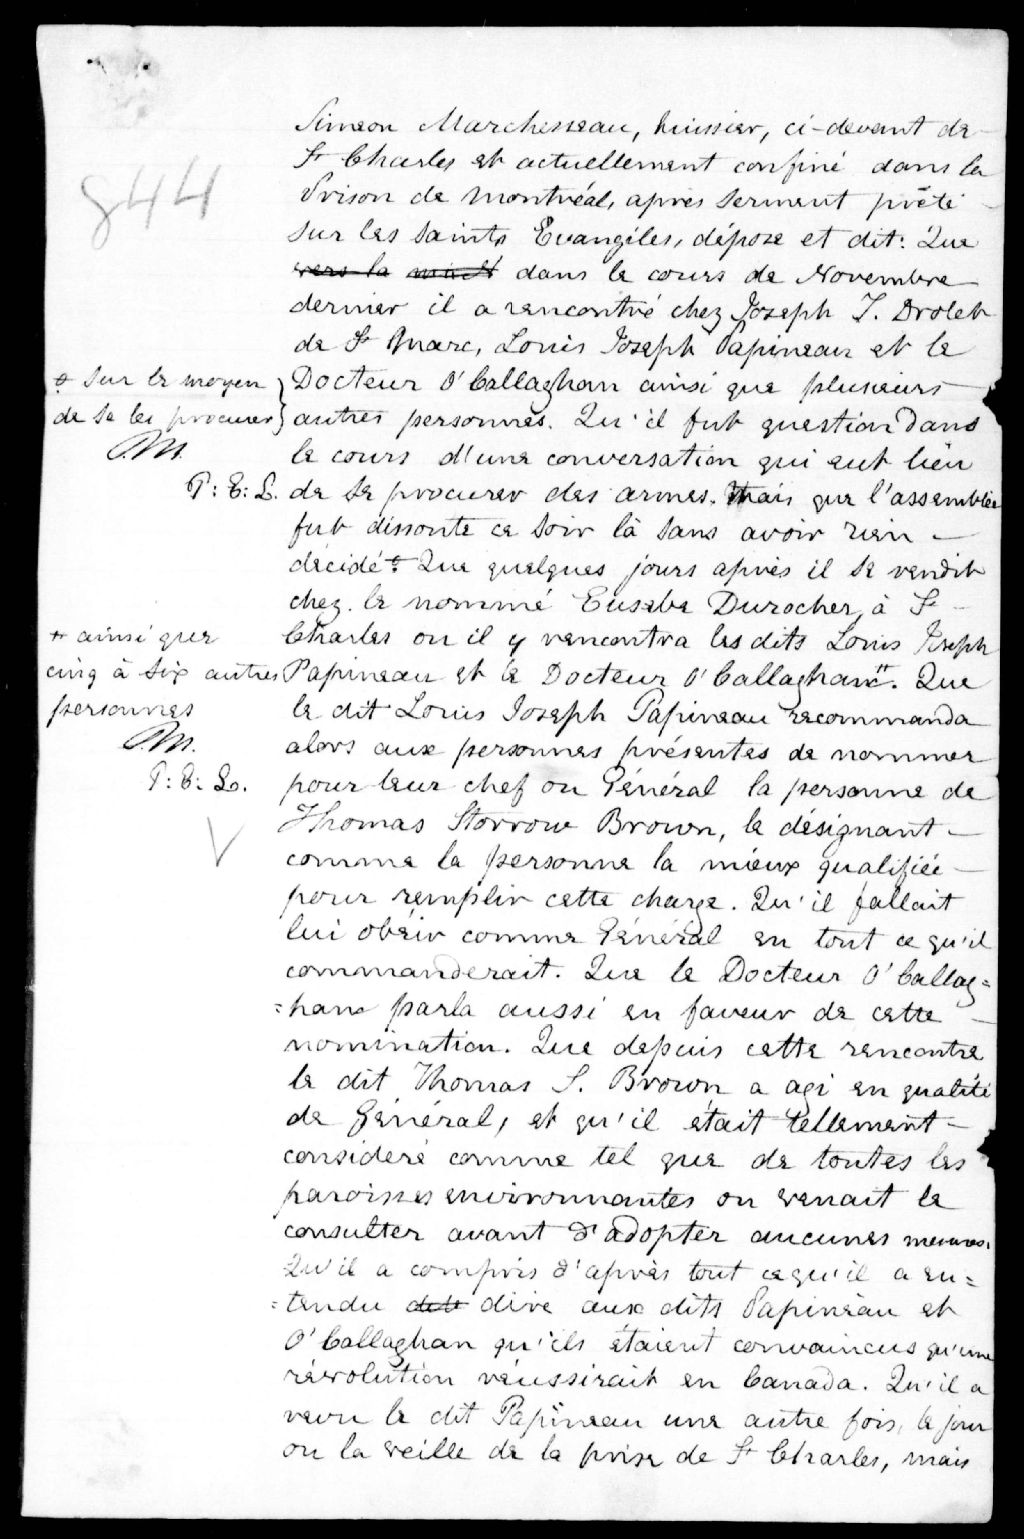 844
Simeon Marchesseau, huissier, ci-devant de
St Charles et actuellement confiné dans la
Prison de Montréal, après serment prêté
sur les Saints Evangiles, dépose et dit: Que
vers la dans le cours de Novembre
dernier il a rencontré chez Joseph T. Drolet
de St Marc, Louis Joseph Papineau et le
Docteur O'Callaghan ainsi que plusieurs
autres personnes. Qu'il fut question dans
le cours d'une conversation qui eut lieu
de se procurer des armes. Mais que l'assemblée
fut dissoute ce soir là sans avoir rien
décidé Que quelques jours après il se rendit
chez le nommé Eusebe Durocher, à St
Charles ou il y rencontra les dits Louis Joseph
Papineau et le Docteur O'Callaghan. Que
le dit Louis Joseph Papineau recommanda
alors aux personnes présentes de nommer
pour leur chef ou Général la personne de
Thomas Storrow Brown, le désignant
comme la personne la mieux qualifiée
pour remplir cette charge. Qu'il fallait
lui obéir comme Général en tout ce qu'il
commanderait. Que le Docteur O'Callag=
=han parla aussi en faveur de cette
nomination. Que depuis cette rencontre
le dit Thomas S. Brown a agi en qualité
de Général, et qu'il était tellement
considéré comme tel que de toutes les
paroisses environnantes on venait le
consulter avant d'adopter aucunes mesures.
Qu'il a compris d'après tout ce qu'il a en=
=tendu dire aux dits Papineau et
O'Callaghan qu'ils étaient convaincus qu'une
révolution réussirait en Canada. Qu'il a
revu le dit Papineau une autre fois, le jour
ou la veille de la prise de St Charles, mais
sur le moyen
de se les procurer
S.M.
P: E: L.
ainsi que
cinq à six autres
personnes
S.M.
P: E: L.